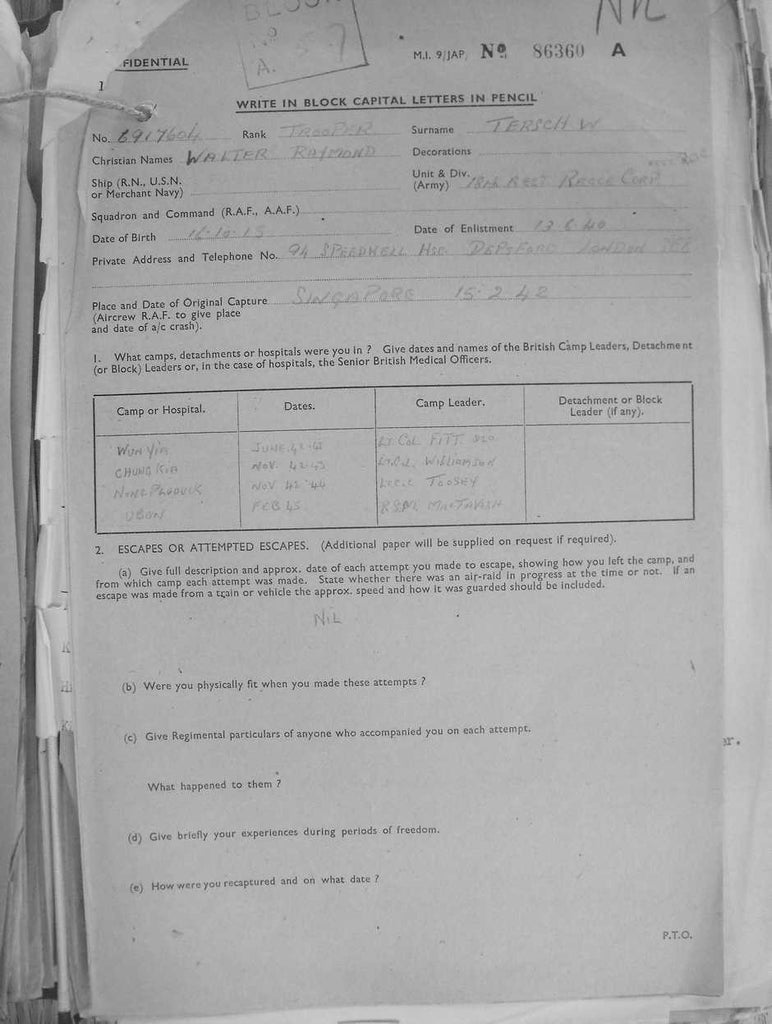 NIL
BLOCK
No 57
A.
FIDENTIAL
M.I. 9/JAP. No 86360 A
1
WRITE IN BLOCK CAPITAL LETTERS IN PENCIL
No. 6917604 Rank TROOPER Surname TERSCH W
Christian Names WALTER RAYMOND Decorations
Ship (R.N., U.S.N. or Merchant Navy)
Unit & Div. (Army) 18th RECC RECCE CORP
Squadron and Command (R.A.F., A.A.F.)
Date of Birth 16.10.15 Date of Enlistment 13.6.40
Private Address and Telephone No. 94 SPEEDWELL HSE DEPTFORD LONDON SE8
Place and Date of Original Capture SINGAPORE 15.2.42
(Aircrew R.A.F. to give place
and date of a/c crash).
1. What camps, detachments or hospitals were you in ? Give dates and names of the British Camp Leaders, Detachment
(or Block) Leaders or, in the case of hospitals, the Senior British Medical Officers.
Camp or Hospital. Dates. Camp Leader. Detachment or Block Leader (if any).
WUN YIA JUNE. 42 LT. COL FITT DSO
CHUNG KIA NOV. 42-43 Lt. Col. WILLIAMSON
NONG PLADUCK NOV 42-44 TOOSEY
UBON FEB 45 RSM MACTAVISH
2. ESCAPES OR ATTEMPTED ESCAPES. (Additional paper will be supplied on request if required).
(a) Give full description and approx. date of each attempt you made to escape, showing how you left the camp, and
from which camp each attempt was made. State whether there was an air-raid in progress at the time or not. If an
escape was made from a train or vehicle the approx. speed and how it was guarded should be included.
NIL
(b) Were you physically fit when you made these attempts ?
(c) Give Regimental particulars of anyone who accompanied you on each attempt.
What happened to them ?
(d) Give briefly your experiences during periods of freedom.
(e) How were you recaptured and on what date ?
P.T.O.